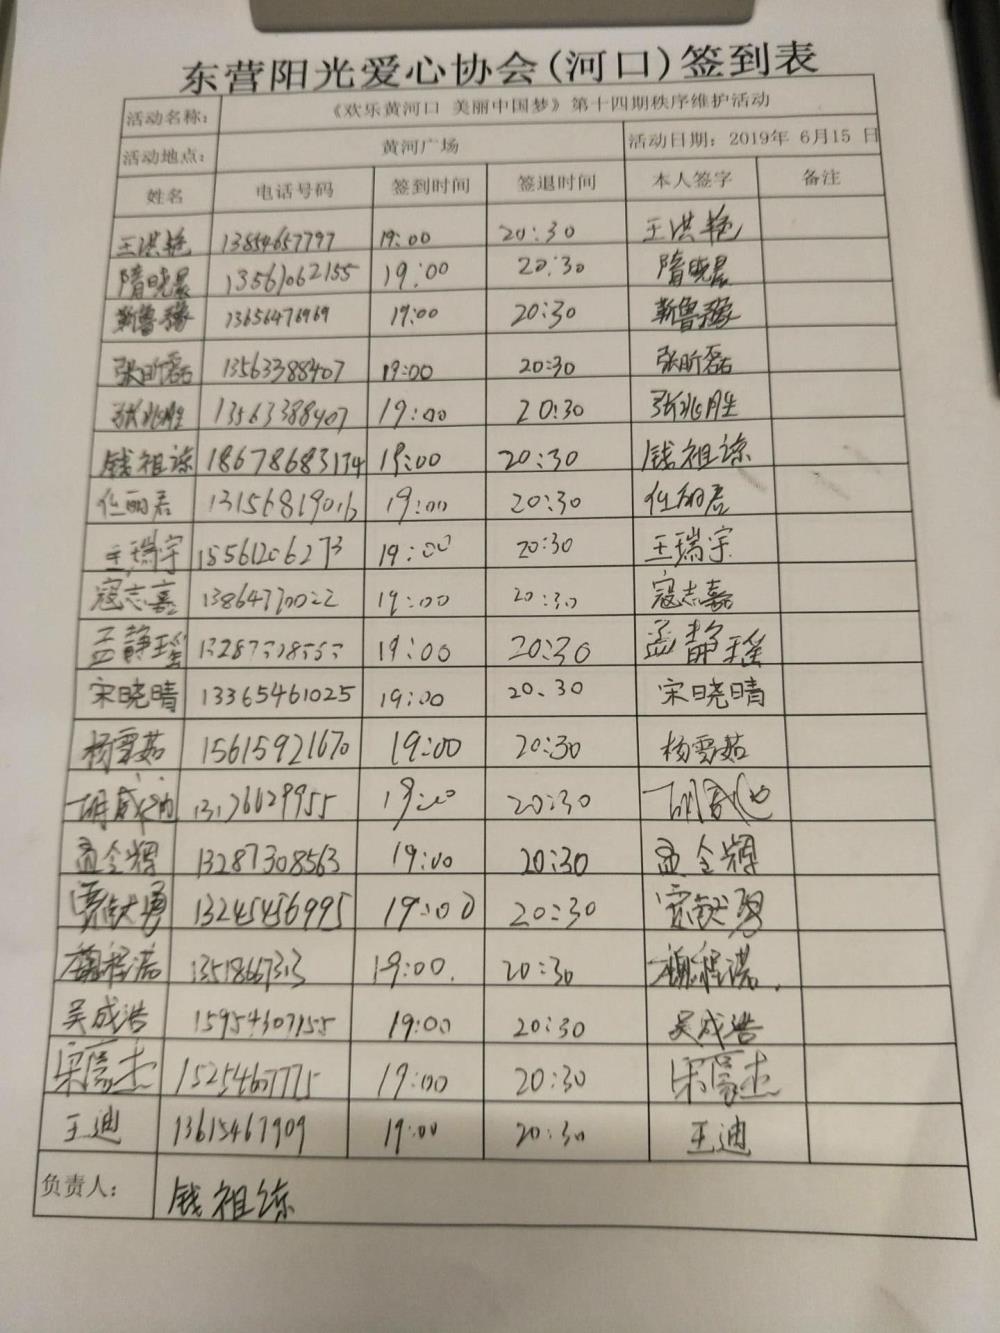 东营阳光爱心协会(河口)签到表
活动名称： 《欢乐黄河口 美丽中国梦》第十四期秩序维护活动
活动地点： 黄河广场 活动日期：2019年 6月15 日
姓名 电话号码 签到时间 签退时间 本人签字 备注
王洪艳 13854657797 19:00 20:30 王洪艳
隋晓晨 13561062155 19:00 20:30 隋晓晨
靳鲁豫 13656476969 19:00 20:30 靳鲁豫
张昕磊 13563388407 19:00 20:30 张昕磊
张兆胜 13563388407 19:00 20:30 张兆胜
钱祖谅 18678683134 19:00 20:30 钱祖谅
任丽君 13156819016 19:00 20:30 任丽君
王瑞宇 18561206273 19:00 20:30 王瑞宇
寇志嘉 13864770022 19:00 20:30 寇志嘉
孟静瑶 19:00 20:30 孟静瑶
宋晓晴 13365461025 19:00 20.30 宋晓晴
杨雪茹 15615921670 19:00 20:30 杨雪茹
19:00 20:30
孟令辉 13287308563 19:00 20:30 孟令辉
13245456995 19:00 20:30
程诺 19:00. 20:30 程诺
吴成浩 15954307155 19:00 20:30 吴成浩
宋富杰 15254607775 19:00 20:30 宋富杰
王迪 13615467909 19:00 20:30 王迪
负责人： 钱祖谅